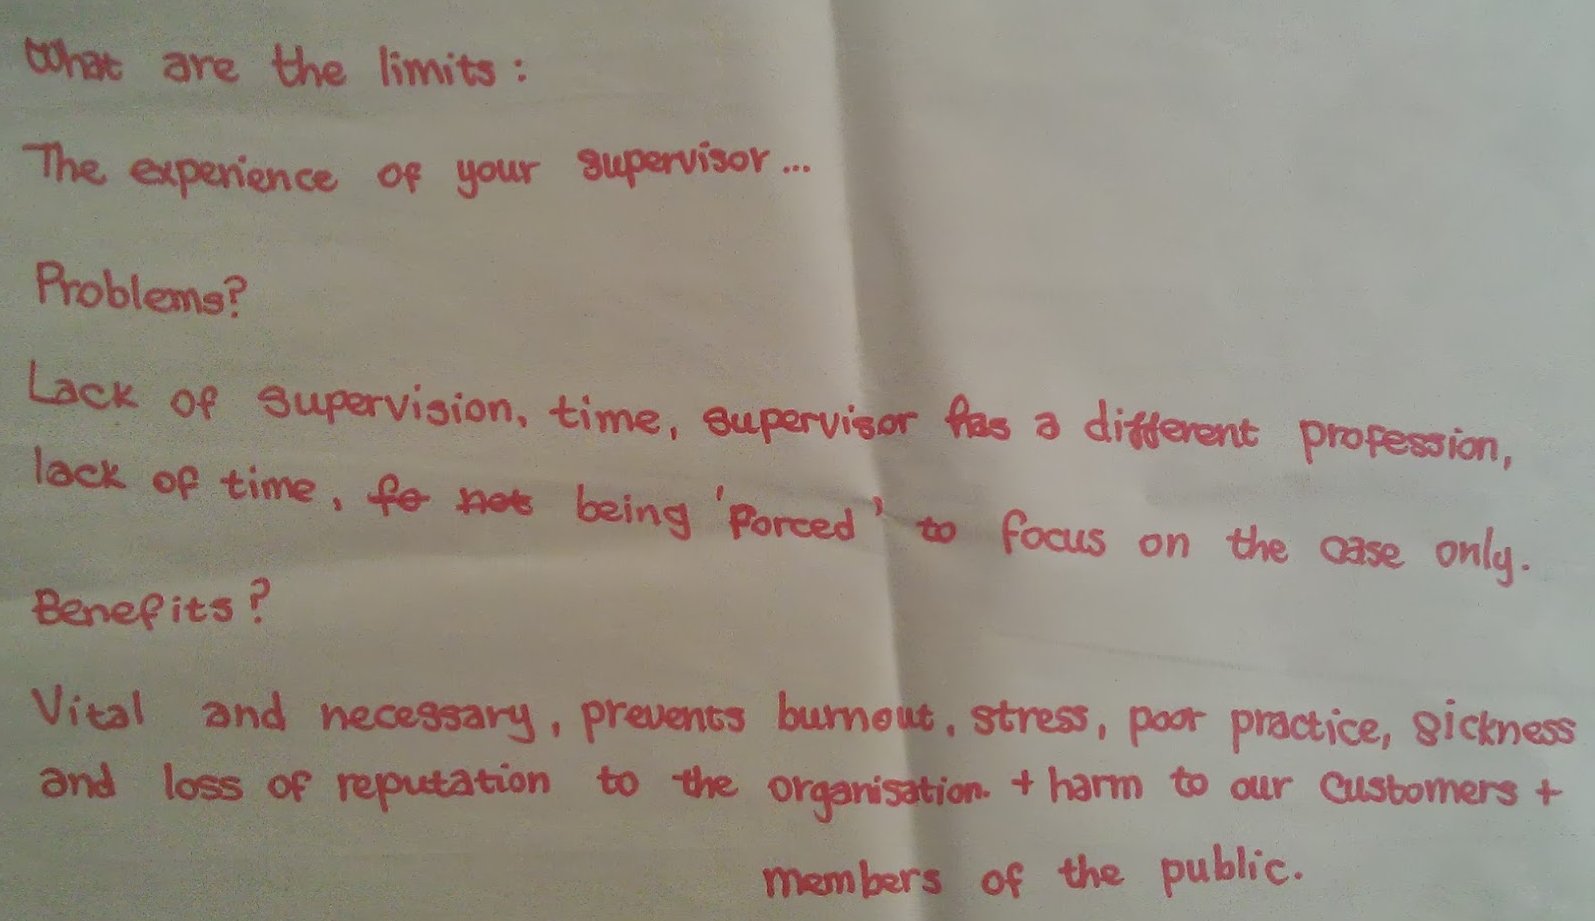 What are the limits :
The experience of your supervisor...
Problems?
Lack of supervision, time, supervisor has a different profession,
lack of time, fo not being 'forced' to focus on the case only.
Benefits?
Vital and necessary, prevents burnout, stress, poor practice, sickness
and loss of reputation to the organisation. + harm to our customers +
members of the public.